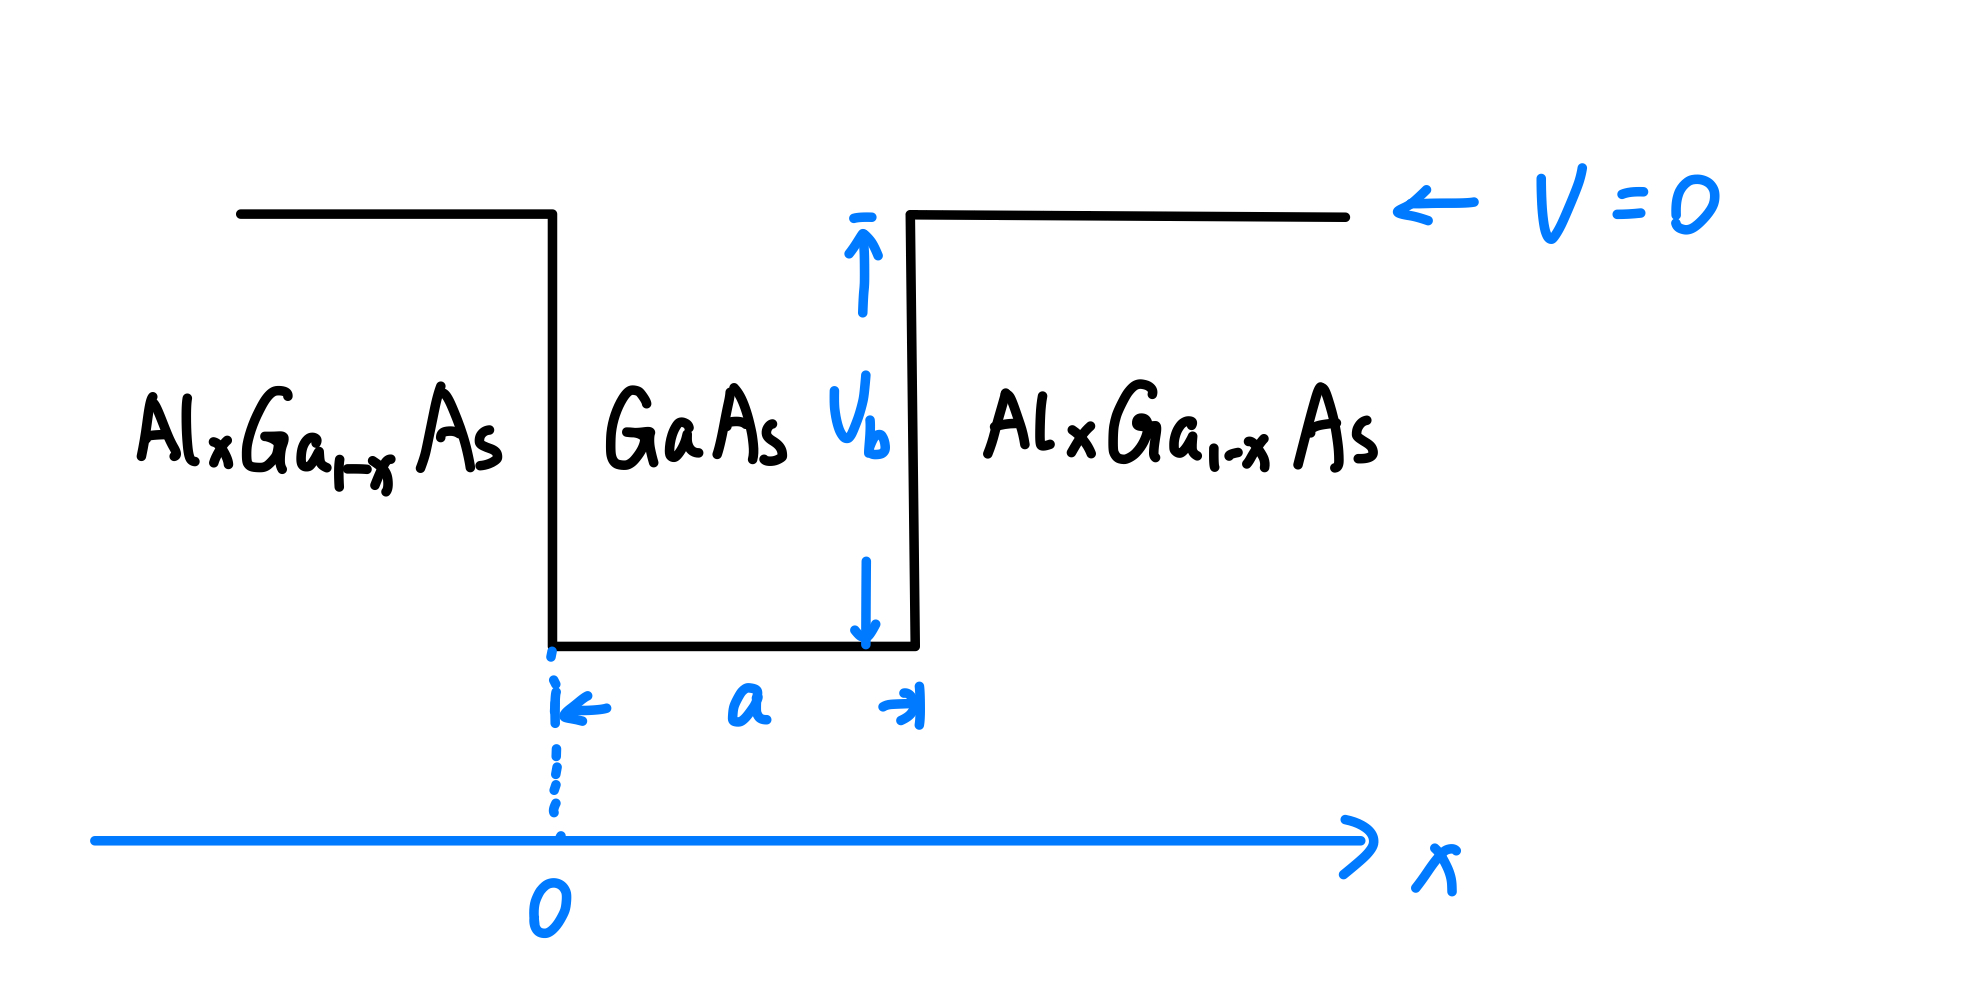 V = 0
AlxGa1-xAs GaAs Vb AlxGa1-xAs
a
x
0